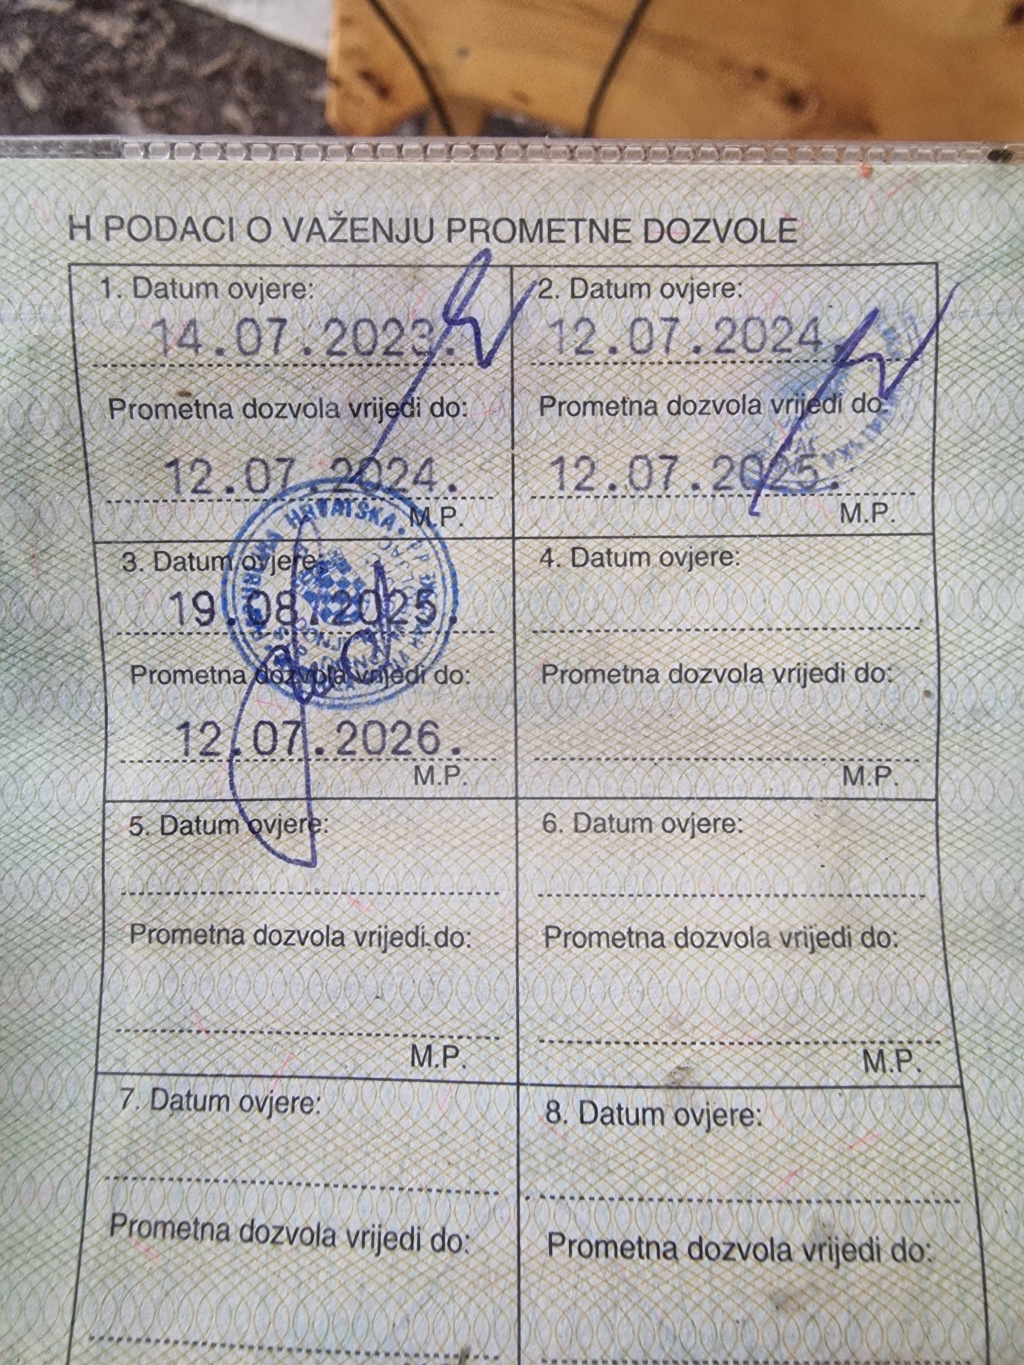 H PODACI O VAŽENJU PROMETNE DOZVOLE
1. Datum ovjere:
14.07.2023.
Prometna dozvola vrijedi do:
12.07.2024.
M.P.
2. Datum ovjere:
12.07.2024.
Prometna dozvola vrijedi do:
12.07.2025.
M.P.
3. Datum ovjere:
19.08.2025.
Prometna dozvola vrijedi do:
12.07.2026.
M.P.
HRVATSKA
4. Datum ovjere:
Prometna dozvola vrijedi do:
M.P.
5. Datum ovjere:
Prometna dozvola vrijedi do:
M.P.
6. Datum ovjere:
Prometna dozvola vrijedi do:
M.P.
7. Datum ovjere:
Prometna dozvola vrijedi do:
8. Datum ovjere:
Prometna dozvola vrijedi do: